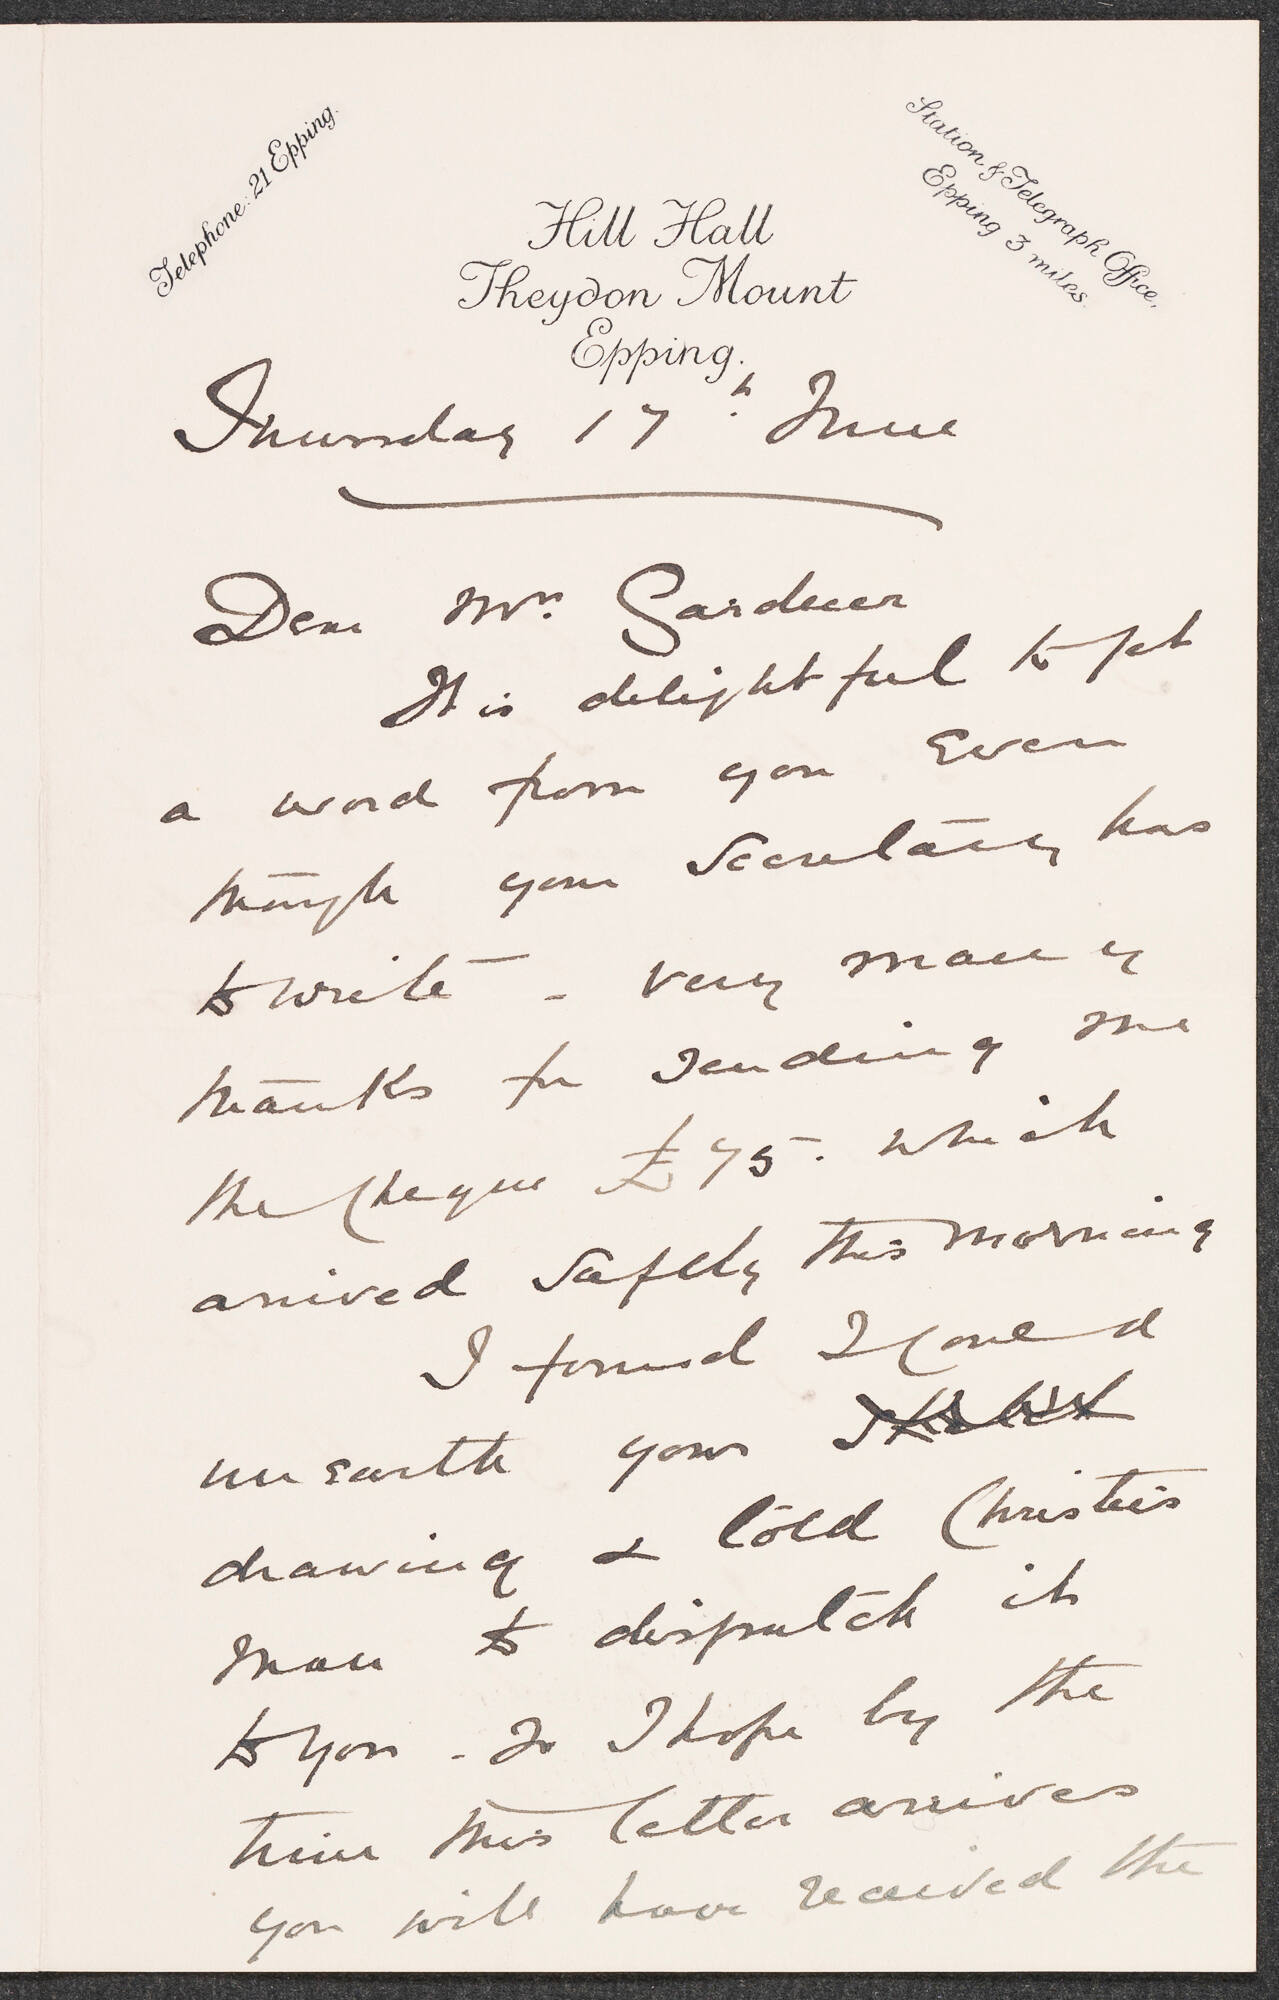 Telephone: 21 Epping.
Station & Telegraph Office,
Epping 3 miles.
Hill Hall
Theydon Mount
Epping.
Thursday 17th June
Dear Mrs. Gardner
It is delightful to get
a word from you even
though your Secretary has
to write - very many
thanks for sending me
the Cheque £75. which
arrived safely this morning
I found I could
unearth your
drawing & told Christie's
man to dispatch it
to you - so I hope by the
time this letter arrives
you will have received the